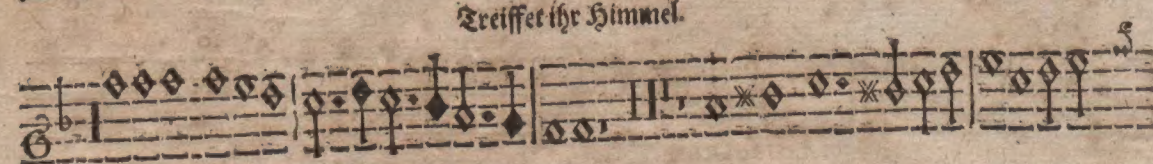 Treiffet ihr Himmel.